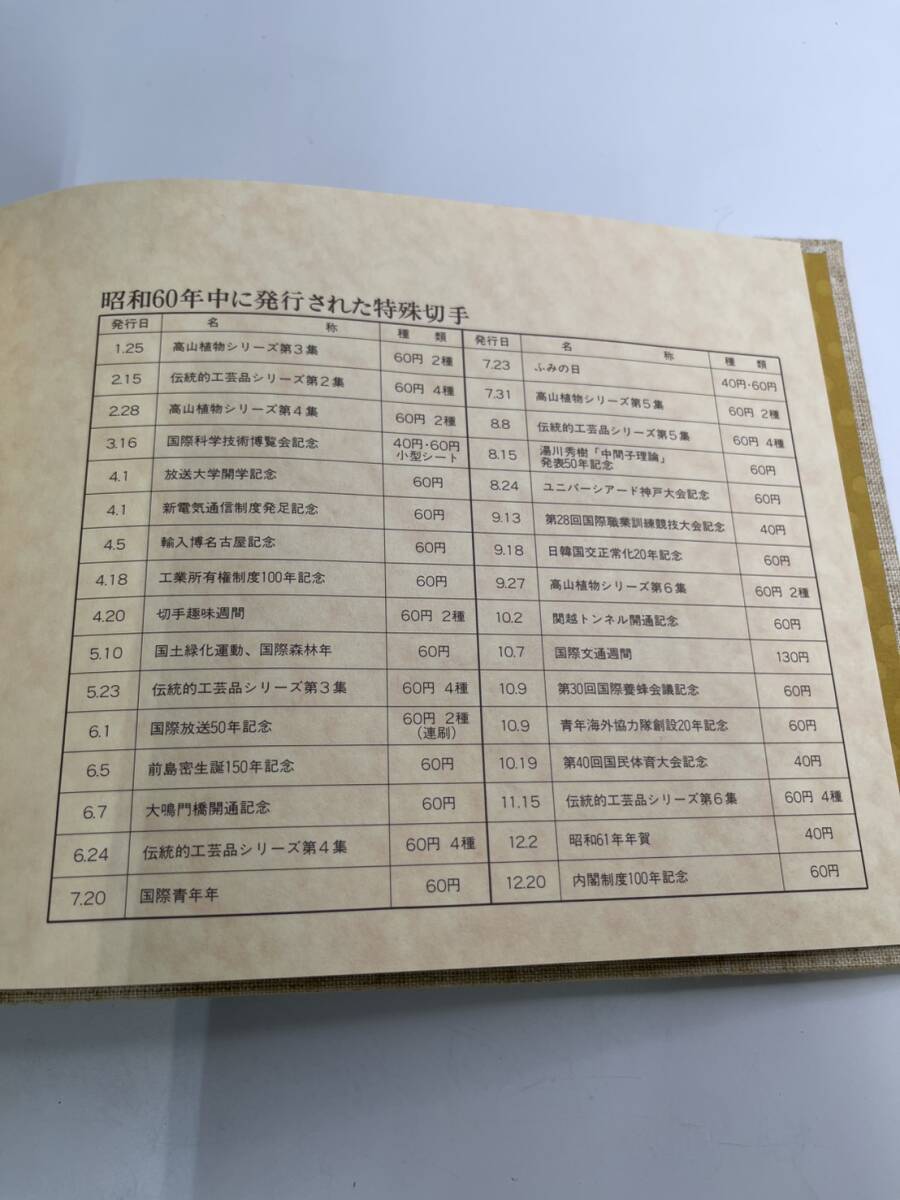 昭和60年中に発行された特殊切手
発行日 名 称 種 類
1.25 高山植物シリーズ第3集 60円 2種
2.15 伝統的工芸品シリーズ第2集 60円 4種
2.28 高山植物シリーズ第4集 60円 2種
3.16 国際科学技術博覧会記念 40円・60円
小型シート
4.1 放送大学開学記念 60円
4.1 新電気通信制度発足記念 60円
4.5 輸入博名古屋記念 60円
4.18 工業所有権制度100年記念 60円
4.20 切手趣味週間 60円 2種
5.10 国土緑化運動、国際森林年 60円
5.23 伝統的工芸品シリーズ第3集 60円 4種
6.1 国際放送50年記念 60円 2種
(連刷)
6.5 前島密生誕150年記念 60円
6.7 大鳴門橋開通記念 60円
6.24 伝統的工芸品シリーズ第4集 60円 4種
7.20 国際青年年 60円
発行日 名 称 種 類
7.23 ふみの日 40円・60円
7.31 高山植物シリーズ第5集 60円 2種
8.8 伝統的工芸品シリーズ第5集 60円 4種
8.15 湯川秀樹「中間子理論」
発表50年記念 60円
8.24 ユニバーシアード神戸大会記念 60円
9.13 第28回国際職業訓練競技大会記念 40円
9.18 日韓国交正常化20年記念 60円
9.27 高山植物シリーズ第6集 60円 2種
10.2 関越トンネル開通記念 60円
10.7 国際文通週間 130円
10.9 第30回国際養蜂会議記念 60円
10.9 青年海外協力隊創設20年記念 60円
10.19 第40回国民体育大会記念 40円
11.15 伝統的工芸品シリーズ第6集 60円 4種
12.2 昭和61年年賀 40円
12.20 内閣制度100年記念 60円